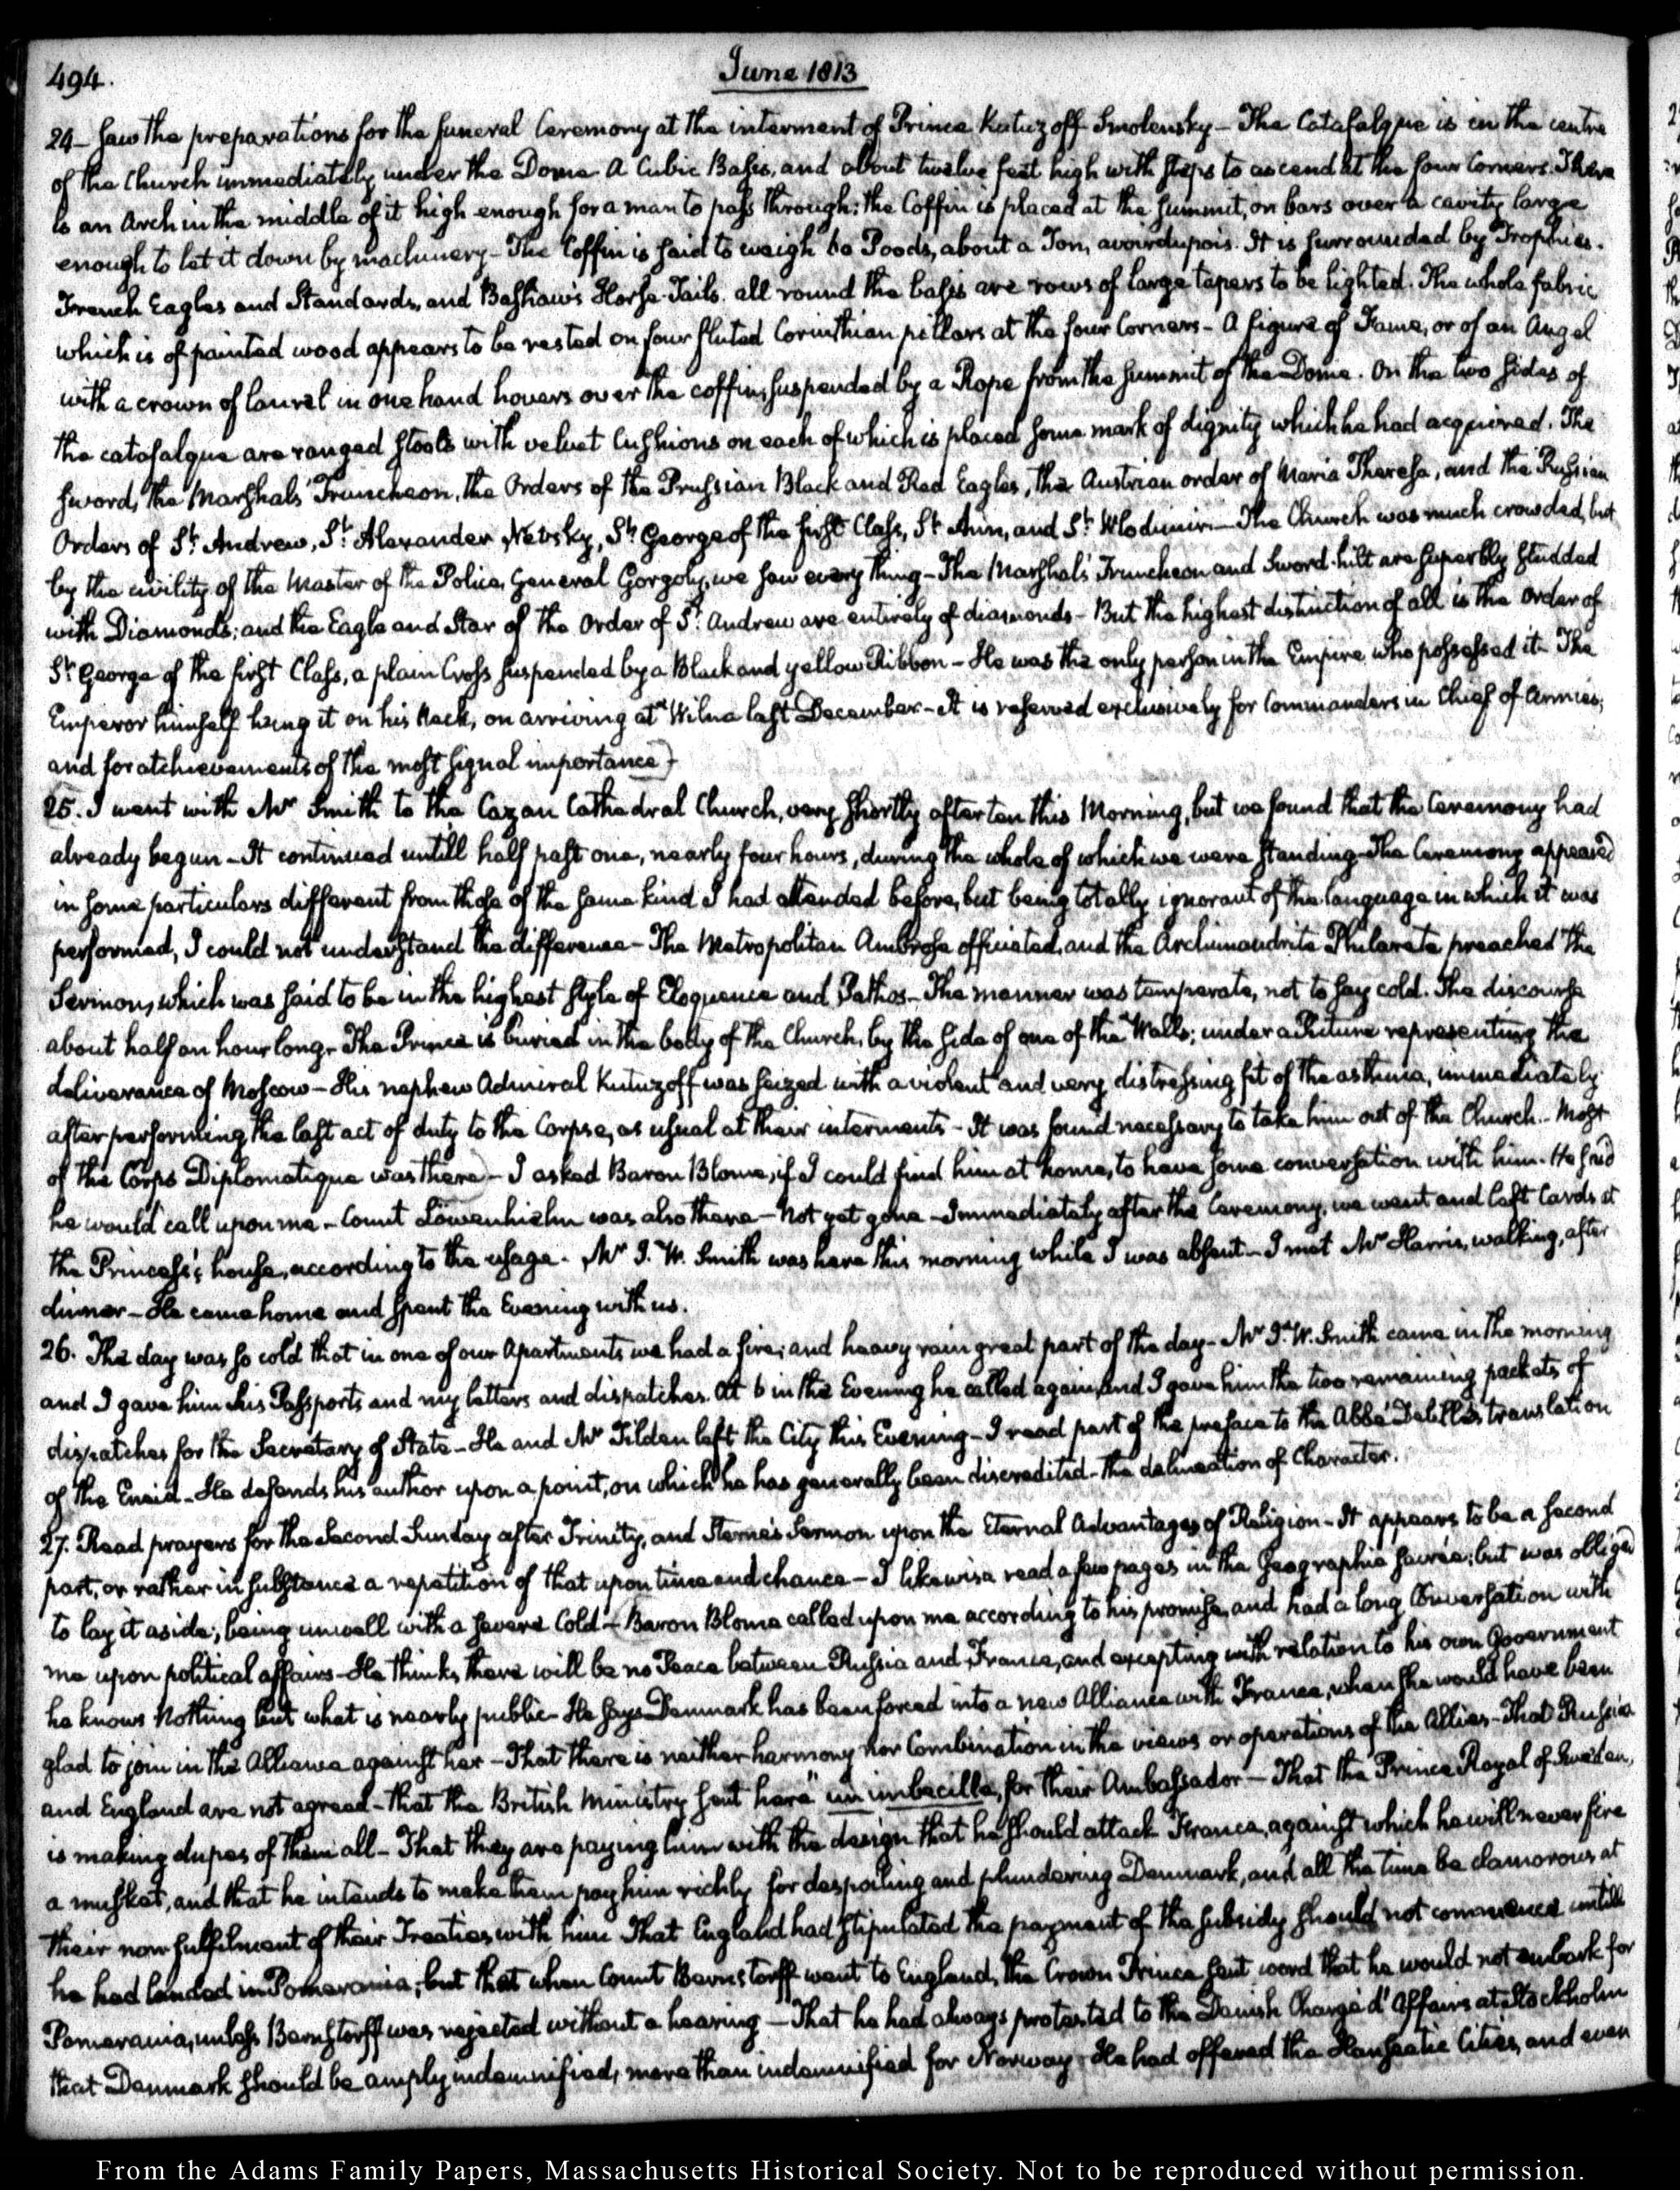 494.
June 1813
24 – Saw the preparations for the funeral Ceremony at the interment of Prince Kutuzoff Smolensky – The Catafalque is in the centre
of the Church immediately under the Dome A Cubic Basis, and about twelve feet high with steps to ascend at the four Corners. There
is an Arch in the middle of it high enough for a man to pass through; the Coffin is placed at the summit, on bars over a cavity large
enough to let it down by machinery – The Coffin is said to weigh 60 Poods, about a Ton, avoirdupois. It is surrounded by Trophies.
French Eagles and Standards, and Bashaw's Horse-Tails. all round the basis are rows of large tapers to be lighted. The whole fabric
which is of painted wood appears to be rested on four fluted Corinthian pillars at the four Corners – A figure of Fame, or of an Angel
with a crown of laurel in one hand hovers over the coffin, suspended by a Rope from the summit of the Dome. On the two sides of
the catafalque are ranged stools with velvet Cushions on each of which is placed some mark of dignity which he had acquired. The
sword, the Marshals' Truncheon, the Orders of the Prussian Black and Red Eagles, the Austrian order of Maria Theresa, and the Russian
Orders of St. Andrew, St. Alexander Newsky, St. George of the first Class, St. Ann, and St. Wlodimir. – The Church was much crowded, but
by the civility of the Master of the Police, General Gorgoly, we saw every thing – The Marshals' Truncheon and Sword-hilt are superbly studded
with Diamonds; and the Eagle and Star of the Order of St. Andrew are entirely of diamonds – But the highest distinction of all is the Order of
St. George of the first Class, a plain Cross suspended by a Black and yellow Ribbon – He was the only person in the Empire who possessed it – The
Emperor himself hung it on his Neck, on arriving at Wilna last December – It is reserved exclusively for Commanders in Chief of Armies;
and for atchievements of the most signal importance) –
25. I went with Mr Smith to the Cazan Cathedral Church, very shortly after ten this Morning, but we found that the Ceremony had
already begun – It continued untill half past one, nearly four hours, during the whole of which we were standing – The Ceremony appeared
in some particulars different from those of the same kind I had attended before, but being totally ignorant of the language in which it was
performed, I could not understand the difference – The Metropolitan Ambrose officiated, and the Archimandrite Philarete preached the
Sermon, which was said to be in the highest style of Eloquence and Pathos – The manner was temperate, not to say cold. The discourse
about half an hour long – The Prince is buried in the body of the Church, by the side of one of the Walls; under a Picture representing the
deliverance of Moscow – His nephew Admiral Kutuzoff was seized with a violent and very distressing fit of the asthma, immediately
after performing the last act of duty to the Corpse, as usual at their interments – It was found necessary to take him out of the Church. – Most
of the Corps Diplomatique was there) – I asked Baron Blome, if I could find him at home, to have some conversation with him. He said
he would call upon me – Count Löwenhielm was also there – Not yet gone – Immediately after the Ceremony, we went and left Cards at
the Princess's house, according to the usage. Mr J. W. Smith was here this morning while I was absent – I met Mr Harris, walking, after
dinner – He came home and spent the Evening with us.
26. The day was so cold that in one of our Apartments we had a fire; and heavy rain great part of the day – Mr J. W. Smith came in the morning
and I gave him his Passports and my letters and dispatches. At 6 in the Evening he called again, and I gave him the two remaining packets of
dispatches for the Secretary of State – He and Mr Tilden left the City this Evening – I read part of the preface to the Abbé Delille's translation
of the Eneid – He defends his author upon a point, on which he has generally been discredited – The delineation of Character.
27. Read prayers for the Second Sunday after Trinity, and Sterne's Sermon upon the Eternal Advantages of Religion – It appears to be a second
part, or rather in substance a repetition of that upon time and chance – I likewise read a few pages in the Geographie Sacrée; but was obliged
to lay it aside; being unwell with a severe Cold – (Baron Blome called upon me according to his promise, and had a long Conversation with
me upon political affairs – He thinks there will be no Peace between Russia and France, and excepting with relation to his own Government
he knows Nothing but what is nearly public – He says Denmark has been forced into a new Alliance with France, when she would have been
glad to join in the Alliance against her – That there is neither harmony nor Combination in the views or operations of the Allies – That Russia
and England are not agreed – That the British Ministry sent here "un imbecille, for their Ambassador – That the Prince Royal of Sweden,
is making dupes of them all – That they are paying him with the design that he should attack France, against which he will never fire
a musket, and that he intends to make them pay him richly for despoiling and plundering Denmark, and all the time be clamorous at
their non fulfilment of their Treaties with him That England had stipulated the payment of the subsidy should not commence untill
he had landed in Pomerania, but that when Count Bernstorff went to England, the Crown Prince sent word that he would not embark for
Pomerania, unless Bernstorff was rejected without a hearing – That he had always protested to the Danish Chargé d'Affairs at Stockholm
that Denmark should be amply indemnified, more than indemnified for Norway – He had offered the Hanseatic Cities, and even
From the Adams Family Papers, Massachusetts Historical Society. Not to be reproduced without permission.